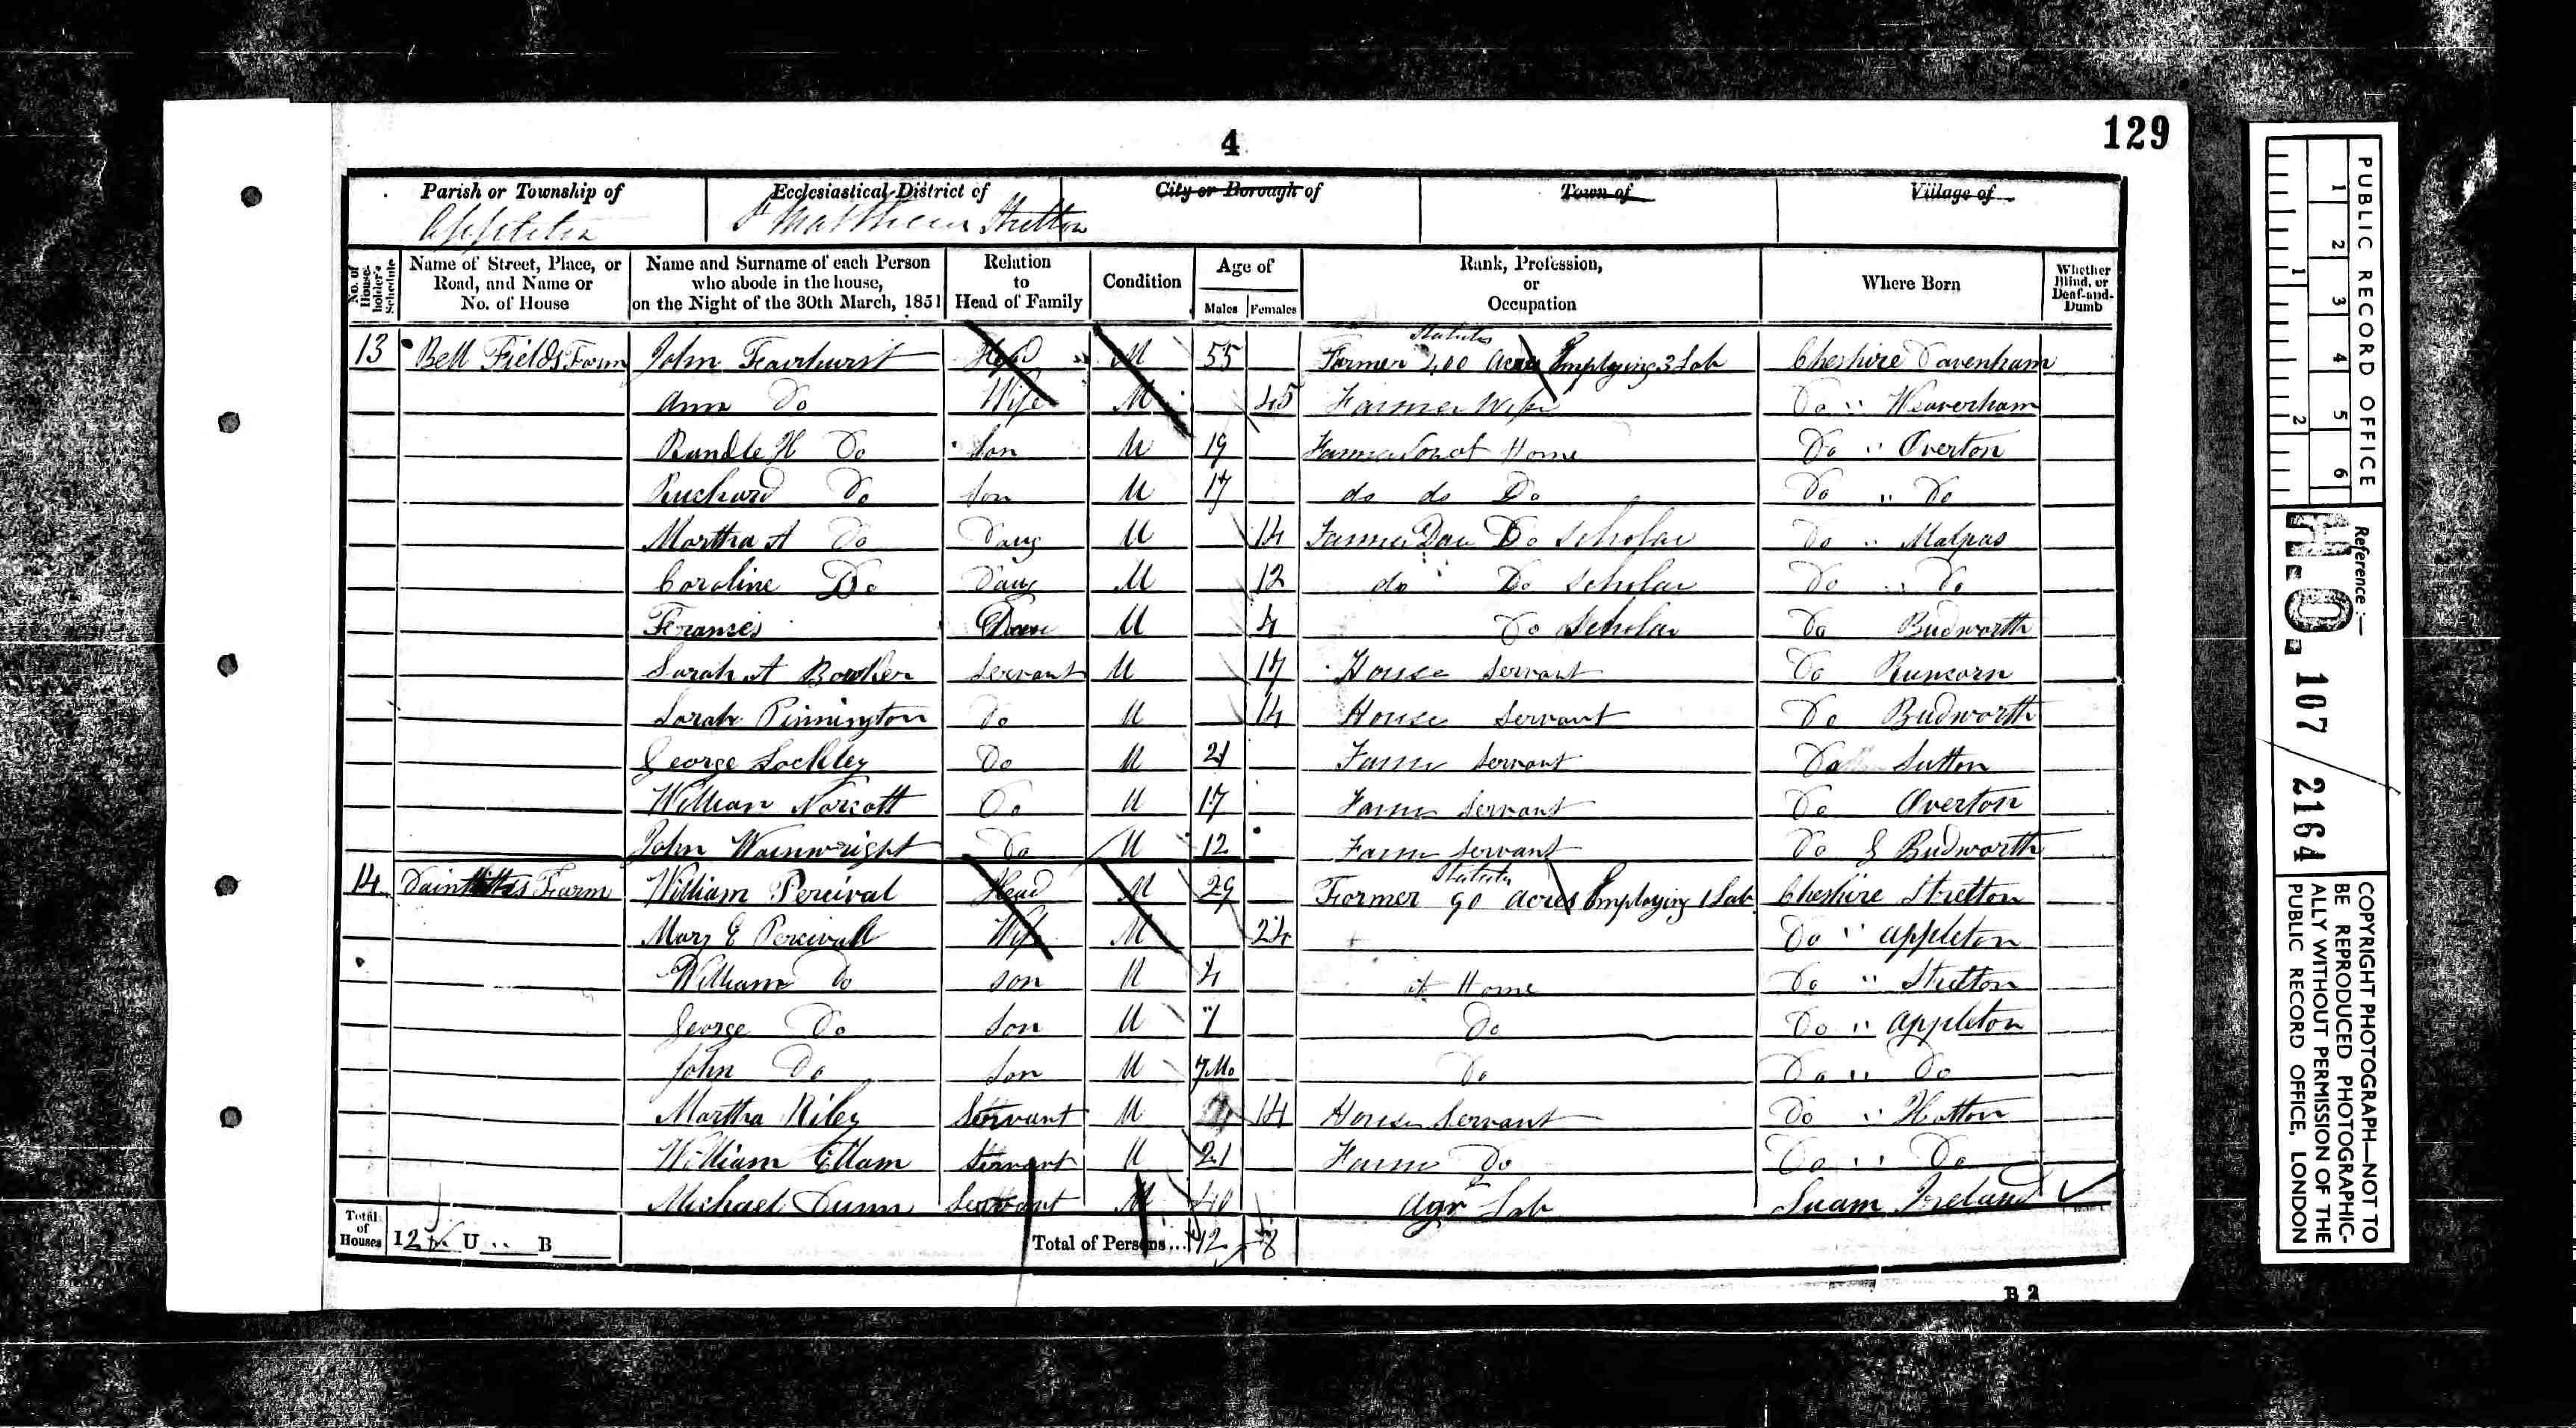 4
129
Parish or Township of
Ecclesiastical District of
City or Borough of
Town of
Village of
Appleton
St Matthew Stretton
No. of House-holder's Schedule
Name of Street, Place, or Road, and Name or No. of House
Name and Surname of each Person who abode in the house, on the Night of the 30th March, 1851
Relation to Head of Family
Condition
Age of
Males
Females
Rank, Profession, or Occupation
Where Born
Whether Blind, or Deaf-and-Dumb
Statute
13 Bell Fields Farm John Fairhurst Head M 55 Farmer 200 acres Employing 3 Lab Cheshire Davenham
Ann Do Wife M 45 Farmer Wife Do " Weaverham
Randle H Do Son U 19 Farmer Son at Home Do " Overton
Richard Do Son U 17 do do Do Do " Do
Martha A Do Daug U 14 Farmer Dau Do Scholar Do " Malpas
Caroline Do Daug U 12 do Do Scholar Do " Do
Frances Dau U 4 Do Scholar Do Budworth
Sarah A Bowker Servant U 17 House Servant Do Runcorn
Sarah Pinnington Do U 14 House Servant Do Budworth
George Lockley Do U 21 Farm Servant Do Sutton
William Norcott Do U 17 Farm Servant Do Overton
John Wainwright Do U 12 Farm Servant Do G Budworth
Statute
14 Farm William Percival Head M 29 Farmer 90 acres Employing 1 Lab Cheshire Stretton
Mary E Percivall Wife M 24 Do " Appleton
William Do son U 4 at Home Do " Stretton
George Do Son U 1 Do Do " Appleton
John Do Son U 7 Mo Do Do " Do
Martha Riley Servant U 14 House Servant Do " Hatton
William Ellam Servant U 21 Farm Do Do " Do
Michael Dunn Servant M 40 Agr Lab Ireland
Total of Houses I 2 U B
Total of Persons... 12 8
B 2
PUBLIC RECORD OFFICE
1 2 3 4 5 6
1 2
Reference:-
H.O. 107 / 2164
COPYRIGHT PHOTOGRAPH—NOT TO
BE REPRODUCED PHOTOGRAPHIC-
ALLY WITHOUT PERMISSION OF THE
PUBLIC RECORD OFFICE, LONDON